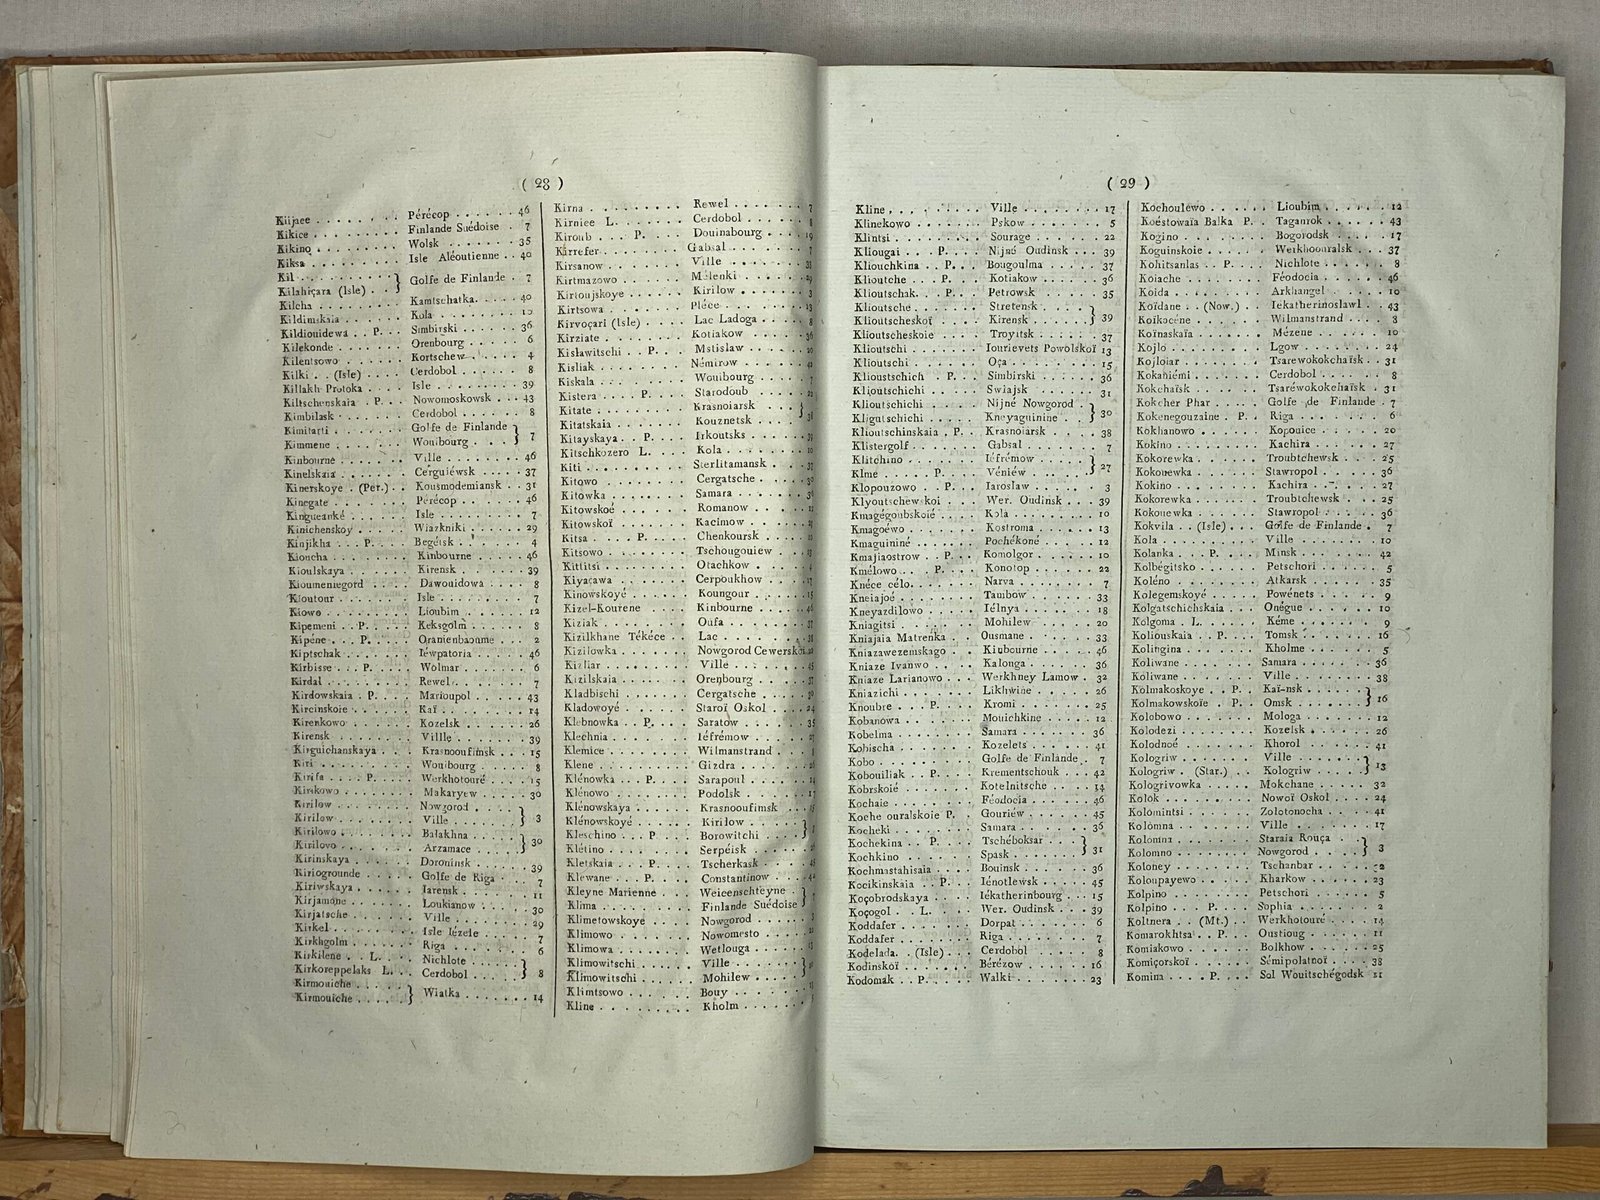 ( 28 )
Kiijaee . . . . . . . . Pérécop . . . . . . 46
Kikice . . . . . . . . Finlande Suédoise . 7
Kikino . . . . . . . . Wolsk . . . . . . . 35
Kiksa . . . . . . . . Isle Aléoutienne . . 40
Kil . . . . . . . . . } Golfe de Finlande . 7
Kilahiçara (Isle) . . }
Kilcha . . . . . . . Kamtschatka. . . . . 40
Kildimskaia . . . . . Kola . . . . . . . 10
Kildiouidewa . . P. . . Simbirski . . . . . 36
Kilekonde . . . . . . Orenbourg . . . . . 6
Kilentsowo . . . . . Kortschew . . . . . 4
Kilki . . (Isle) . . . . Cerdobol . . . . . 8
Killakh Protoka . . . . Isle . . . . . . . 39
Kiltschenskaia . P. . . Nowomoskowsk . . . 43
Kimbilask . . . . . . Cerdobol . . . . . 8
Kimitarti . . . . . . Golfe de Finlande } 7
Kimmene . . . . . . Wouibourg . . . }
Kinbourne . . . . . . Ville . . . . . . . 46
Kinelskaia . . . . . . Cerguiéwsk . . . . 37
Kinerskoye . (Per.) . . Kousmodemiansk . . . 31
Kinegate . . . . . . Pérécop . . . . . . 46
Kingueanké . . . . . Isle . . . . . . . 7
Kinichenskoy . . . . . Wiazkniki . . . . . 29
Kinjikha . . . P. . . . Begéisk . . . . . . 4
Kioncha . . . . . . Kinbourne . . . . . 46
Kioulskaya . . . . . Kirensk . . . . . . 39
Kioumeniegord . . . . Dawouidowa . . . . 8
Kioutour . . . . . . Isle . . . . . . . 7
Kiowo . . . . . . . Lioubim . . . . . . 12
Kipemeni . . P. . . . Keksgolm . . . . . 8
Kipéne . . . P. . . . Oranienbaoume . . . 2
Kiptschak . . . . . . Iéwpatoria . . . . . 46
Kirbisse . . . P. . . . Wolmar . . . . . . 6
Kirdal . . . . . . . Rewel . . . . . . . 7
Kirdowskaia . P. . . . Marioupol . . . . . 43
Kireinskoie . . . . . Kaï . . . . . . . . 14
Kirenkowo . . . . . . Kozelsk . . . . . . 26
Kirensk . . . . . . . Villle . . . . . . . 39
Kirguichanskaya . . . . Krasnooufimsk . . . 15
Kiri . . . . . . . . Wouibourg . . . . . 8
Kirifa . . . . P. . . . Werkhotouré . . . . 15
Kirskowo . . . . . . Makaryew . . . . . 30
Kirilow . . . . . . . Nowgorod . . . . } 3
Kirilow . . . . . . . Ville . . . . . . }
Kirilowo . . . . . . Balakhna . . . . } 30
Kirilovo . . . . . . Arzamace . . . . }
Kirinskaya . . . . . . Doroninsk . . . . . 39
Kiriogrounde . . . . . Golfe de Riga . . . . 7
Kiriwskaya . . . . . Iarensk . . . . . . 11
Kirjamone . . . . . . Loukianow . . . . . 30
Kirjatsche . . . . . . Ville . . . . . . . 29
Kirkel . . . . . . . Isle Iézele . . . . . 7
Kirkhgolm . . . . . . Riga . . . . . . . 6
Kirkilene . . L. . . . Nichlote . . . . . } 8
Kirkoreppelaks L. . . . Cerdobol . . . . }
Kirmouiche . . . . . } Wiatka . . . . . . . 14
Kirmouiche . . . . . }
Kirna . . . . . . . . Rewel . . . . . . . 7
Kirniee L. . . . . . . Cerdobol . . . . . . 8
Kiroub . . . P. . . . Douinabourg . . . . 19
Kirrefer . . . . . . . Gabsal . . . . . . . 7
Kirsanow . . . . . . Ville . . . . . . .
Kirtmazowo . . . . . Mélenki . . . . . . 29
Kirtoujskoye . . . . . Kirilow . . . . . . 3
Kirtsowa . . . . . . Pléce . . . . . . . 13
Kirvoçari (Isle) . . . . Lac Ladoga . . . . . 8
Kirziate . . . . . . . Kotiakow . . . . . 36
Kislawitschi . . P. . . Mstislaw . . . . . . 20
Kisliak . . . . . . . Némirow . . . . .
Kiskala . . . . . . . Wouibourg . . . . . 7
Kistera . . . . P. . . Starodoub . . . . . 22
Kitate . . . . . . . Krasnoiarsk . . . . } 38
Kitatskaia . . . . . . Kouznetsk . . . . }
Kitayskaya . . P. . . . Irkoutsks . . . . . 39
Kitschkozero L. . . . . Kola . . . . . . . 10
Kiti . . . . . . . . Sterlitamansk . . . . 37
Kitowo . . . . . . . Cergatsche . . . . . 30
Kitowka . . . . . . . Samara . . . . . . 36
Kitowskoé . . . . . . Romanow . . . . .
Kitowskoï . . . . . . Kacimow . . . . .
Kitsa . . . . P. . . . Chenkoursk . . . .
Kitsowo . . . . . . . Tschougouiew . . . .
Kittitsi . . . . . . . Otachkow . . . . . 4
Kiyaçawa . . . . . . Cerpoukhow . . . . 17
Kinowskoyé . . . . . Koungour . . . . . 15
Kizel-Kourene . . . . Kinbourne . . . . . 46
Kiziak . . . . . . . Oufa . . . . . . . 37
Kizilkhane Tékéce . . . Lac . . . . . . . . 38
Kizilowka . . . . . . Nowgorod Cewerskoi
Kizliar . . . . . . . Ville . . . . . . . 45
Kizilskaia . . . . . . Orenbourg . . . . . 37
Kladbischi . . . . . . Cergatsche . . . . . 30
Kladowoyé . . . . . . Staroï Oskol . . . . 24
Klebnowka . . P. . . . Saratow . . . . . . 35
Klechnia . . . . . . Iéfrémow . . . . . 27
Klemice . . . . . . . Wilmanstrand . . . . 8
Klene . . . . . . . . Gizdra . . . . . . 26
Klénowka . . P. . . . Sarapoul . . . . . . 14
Klénowo . . . . . . Podolsk . . . . . . 17
Klénowskaya . . . . . Krasnooufimsk . . . 15
Klénowskoyé . . . . . Kirilow . . . . . }
Kleschino . . . P. . . Borowitchi . . . . }
Klétino . . . . . . . Serpéisk . . . . . 26
Kletskaia . . . P. . . Tscherkask . . . . .
Klewane . . . P. . . . Constantinow . . . . 42
Kleyne Marienne . . . Weicenschteyne . . } 7
Klima . . . . . . . . Finlande Suédoise }
Klimetowskoye . . . . Nowgorod . . . . . 3
Klimowo . . . . . . Nowomesto . . . .
Klimowa . . . . . . Wetlouga . . . . . 13
Klimowitschi . . . . . Ville . . . . . . } 20
Klimowitschi . . . . . Mohilew . . . . . }
Klimtsowo . . . . . . Bouy . . . . . . .
Kline . . . . . . . . Kholm . . . . . .
( 29 )
Kline . . . . . . . . Ville . . . . . . . 17
Klinekowo . . . . . . Pskow . . . . . . . 5
Klintsi . . . . . . . Sourage . . . . . . 22
Kliougai . . . P. . . . Nijné Oudinsk . . . 39
Kliouchkina . . P. . . Bougoulma . . . . . 37
Klioutche . . . P. . . Kotiakow . . . . . . 36
Klioutschak . . P. . . Petrowsk . . . . . 35
Klioutsche . . . . . . Stretensk . . . . } 39
Klioutscheskoï . . . . Kirensk . . . . . }
Klioutscheskoie . . . . Troyitsk . . . . . . 37
Klioutschi . . . . . . Iourievets Powolskoï 13
Klioutschi . . . . . . Oça . . . . . . . . 15
Klioustschich . P. . . Simbirski . . . . . 36
Klioutschichi . . . . . Swiajsk . . . . . . 31
Klioutschichi . . . . . Nijné Nowgorod . } 30
Kligutschichi . . . . . Kneyaguinine . . . }
Klioutschinskaia . P. . . Krasnoiarsk . . . . 38
Klistergolf . . . . . . Gabsal . . . . . . 7
Klitchino . . . . . . Iéfrémow . . . . } 27
Klme . . . . P. . . . Véniéw . . . . . }
Klopouzowo . . P. . . Iaroslaw . . . . . . 3
Klyoutschewskoi . . . Wer. Oudinsk . . . . 39
Kmagégoubskoié . . . . Kola . . . . . . . 10
Kmagoéwo . . . . . . Kostroma . . . . . 13
Kmaguininé . . . . . Pochékoné . . . . . 12
Kmajiaostrow . . P. . . Komolgor . . . . . 10
Kmélowo . . . P. . . . Konotop . . . . . . 22
Knéce célo. . . . . . Narva . . . . . . . 7
Kneiajoé . . . . . . . Tambow . . . . . . 33
Kneyazdilowo . . . . . Iélnya . . . . . . 18
Kniagitsi . . . . . . Mohilew . . . . . . 20
Kniajaia Matrenka . . . Ousmane . . . . . 33
Kniazawezemskago . . . Kiubourne . . . . . 46
Kniaze Ivanwo . . . . Kalonga . . . . . . 36
Kniaze Larianowo . . . Werkhney Lamow . . 32
Kniazichi . . . . . . Likhwine . . . . . 26
Knoubre . . . P. . . . Kromi . . . . . . . 25
Kobanowa . . . . . . Mouichkine . . . . 12
Kobelma . . . . . . . Samara . . . . . . 36
Kobischa . . . . . . Kozelets . . . . . . 41
Kobo . . . . . . . . Golfe de Finlande . . 7
Kobouiliak . . P. . . . Krementschouk . . . 42
Kobrskoié . . . . . . Kotelnitsche . . . . 14
Kochaie . . . . . . . Féodocia . . . . . 46
Koche ouralskoie P. . . Gouriéw . . . . . . 45
Kocheki . . . . . . . Samara . . . . . . 36
Kochekina . . P. . . . Tschéboksar . . . } 31
Kochkino . . . . . . Spask . . . . . . }
Kochmastahisaia . . . . Bouinsk . . . . . . 36
Kocikinskaia . . P. . . Iénotlewsk . . . . . 45
Koçobrodskaya . . . . Iékatherinbourg . . . 15
Koçogol . . . L. . . . Wer. Oudinsk . . . . 39
Koddafer . . . . . . Dorpat . . . . . . 6
Koddafer . . . . . . Riga . . . . . . . 7
Kodelada. . (Isle) . . . Cerdobol . . . . . 8
Kodinskoï . . . . . . Bérézow . . . . . . 16
Kodomak . . P. . . . . Walki . . . . . . . 23
Kochoulewo . . . . . Lioubim . . . . . . 12
Koéstowaïa Balka P. . . Taganrok . . . . . 43
Kogino . . . . . . . Bogorodsk . . . . . 17
Koguinskoie . . . . . Weikhoouralsk . . . 37
Kohitsanlas . . P. . . Nichlote . . . . . . 8
Koiache . . . . . . . Féodocia . . . . . 46
Koida . . . . . . . . Arkhangel . . . . . 10
Koïdane . . (Now.) . . Iekatherinoslawl . . 43
Koïkocéne . . . . . . Wilmanstrand . . . . 8
Koïnaskaïa . . . . . . Mézene . . . . . . 10
Kojlo . . . . . . . . Lgow . . . . . . . 24
Kojloiar . . . . . . . Tsarewokokchaïsk . . 31
Kokahiémi . . . . . . Cerdobol . . . . . 8
Kokchaïsk . . . . . . Tsaréwokokchaïsk . . 31
Kokcher Phar . . . . . Golfe de Finlande . 7
Kokenegouzaine . P. . . Riga . . . . . . . 6
Kokhanowo . . . . . . Kopouice . . . . . 20
Kokino . . . . . . . Kachira . . . . . . 27
Kokorewka . . . . . . Troubtchewsk . . . 25
Kokouewka . . . . . . Stawropol . . . . . 36
Kokino . . . . . . . Kachira . . . . . . 27
Kokorewka . . . . . . Troubtchewsk . . . 25
Kokouewka . . . . . . Stawropol . . . . . 36
Kokvila . . (Isle) . . . Golfe de Finlande . 7
Kola . . . . . . . . Ville . . . . . . . 10
Kolanka . . . P. . . . Minsk . . . . . . . 42
Kolbégitsko . . . . . Petschori . . . . . 5
Koléno . . . . . . . Atkarsk . . . . . . 35
Kolegemskoyé . . . . . Powénets . . . . . 9
Kolgatschichskaia . . . Onégue . . . . . . 10
Kolgoma . L. . . . . . Kéme . . . . . . . 9
Koliouskaia . . P. . . Tomsk . . . . . . . 16
Kolingina . . . . . . Kholme . . . . . . 5
Koliwane . . . . . . Samara . . . . . . 36
Koliwane . . . . . . Ville . . . . . . . 38
Kolmakoskoye . . P. . Kaï-nsk . . . . . } 16
Kolmakowskoïe . P. . Omsk . . . . . . }
Kolobowo . . . . . . Mologa . . . . . . 12
Kolodezi . . . . . . Kozelsk . . . . . . 26
Kolodnoé . . . . . . Khorol . . . . . . 41
Kologriw . . . . . . Ville . . . . . . } 13
Kologriw . (Star.) . . . Kologriw . . . . }
Kologrivowka . . . . . Mokchane . . . . . 32
Kolok . . . . . . . . Nowoï Oskol . . . . 24
Kolomintsi . . . . . . Zolotonocha . . . . 41
Kolomna . . . . . . . Ville . . . . . . . 17
Kolomna . . . . . . . Staraïa Rouça . . } 3
Kolomno . . . . . . . Nowgorod . . . . }
Koloney . . . . . . . Tschanbar . . . . .
Koloupayewo . . . . . Kharkow . . . . . . 23
Kolpino . . . . . . . Petschori . . . . . 5
Kolpino . . . P. . . . Sophia . . . . . . 2
Koltnera . . (Mt.) . . Werkhotouré . . . . 14
Komarokhtsa . . P. . . Oustioug . . . . . 11
Komiakowo . . . . . . Bolkhow . . . . . . 25
Komiçorskoï . . . . . Sémipolatnoï . . . . 38
Komina . . . P. . . . Sol Wouitschégodsk 11